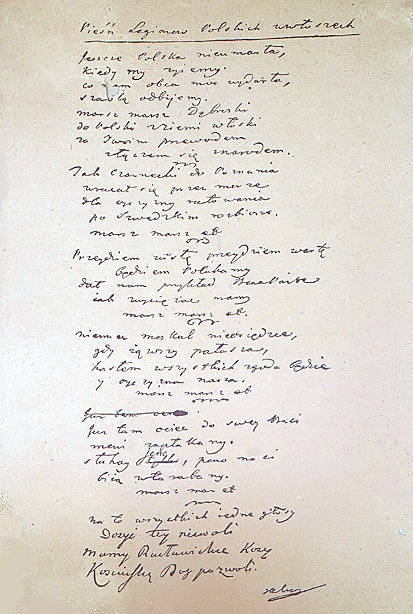 Pieśń Legionów Polskich we Włoszech
Jeszcze Polska nieumarła,
kiedy my żyjemy.
co nam obca moc wydarła,
szablą odbijemy.
marsz marsz Dąbrski
do Polski z ziemi włoski
za Twoim przewodem
złączem się z narodem.
Jak Czarnecki do Poznania
wracał się przez morze
dla ojczyzny ratowania
po Szwedzkim rozbiorze.
marsz marsz et
Przejdziem wisłę przejdziem wartę
będziem Polakamy
dał nam przykład Bonaparte
jak zwyciężać mamy
marsz marsz et.
niemiec moskal nieosiędzie,
gdy jąwszy pałasza,
hasłem wszystkich zgoda będzie
y ojczyzna nasza.
marsz marsz et
Już tam
Już tam ociec do swej Basi
mówi zapłakany.
słuchaj jeno, pono nasi
biją w tarabany.
marsz mar et
na to wszystkich jedne głosy
Dosyć tej niewoli
Mamy Racławickie Kosy
Kościuszkę Bog pozwoli.